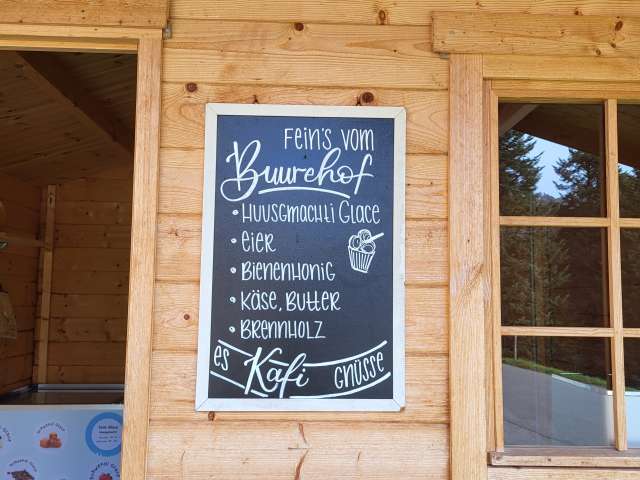 Fein's vom
Buurehof
• Huusgmachti Glace
• Eier
• Bienenhonig
• Käse, Butter
• Brennholz
es Kafi gnüsse